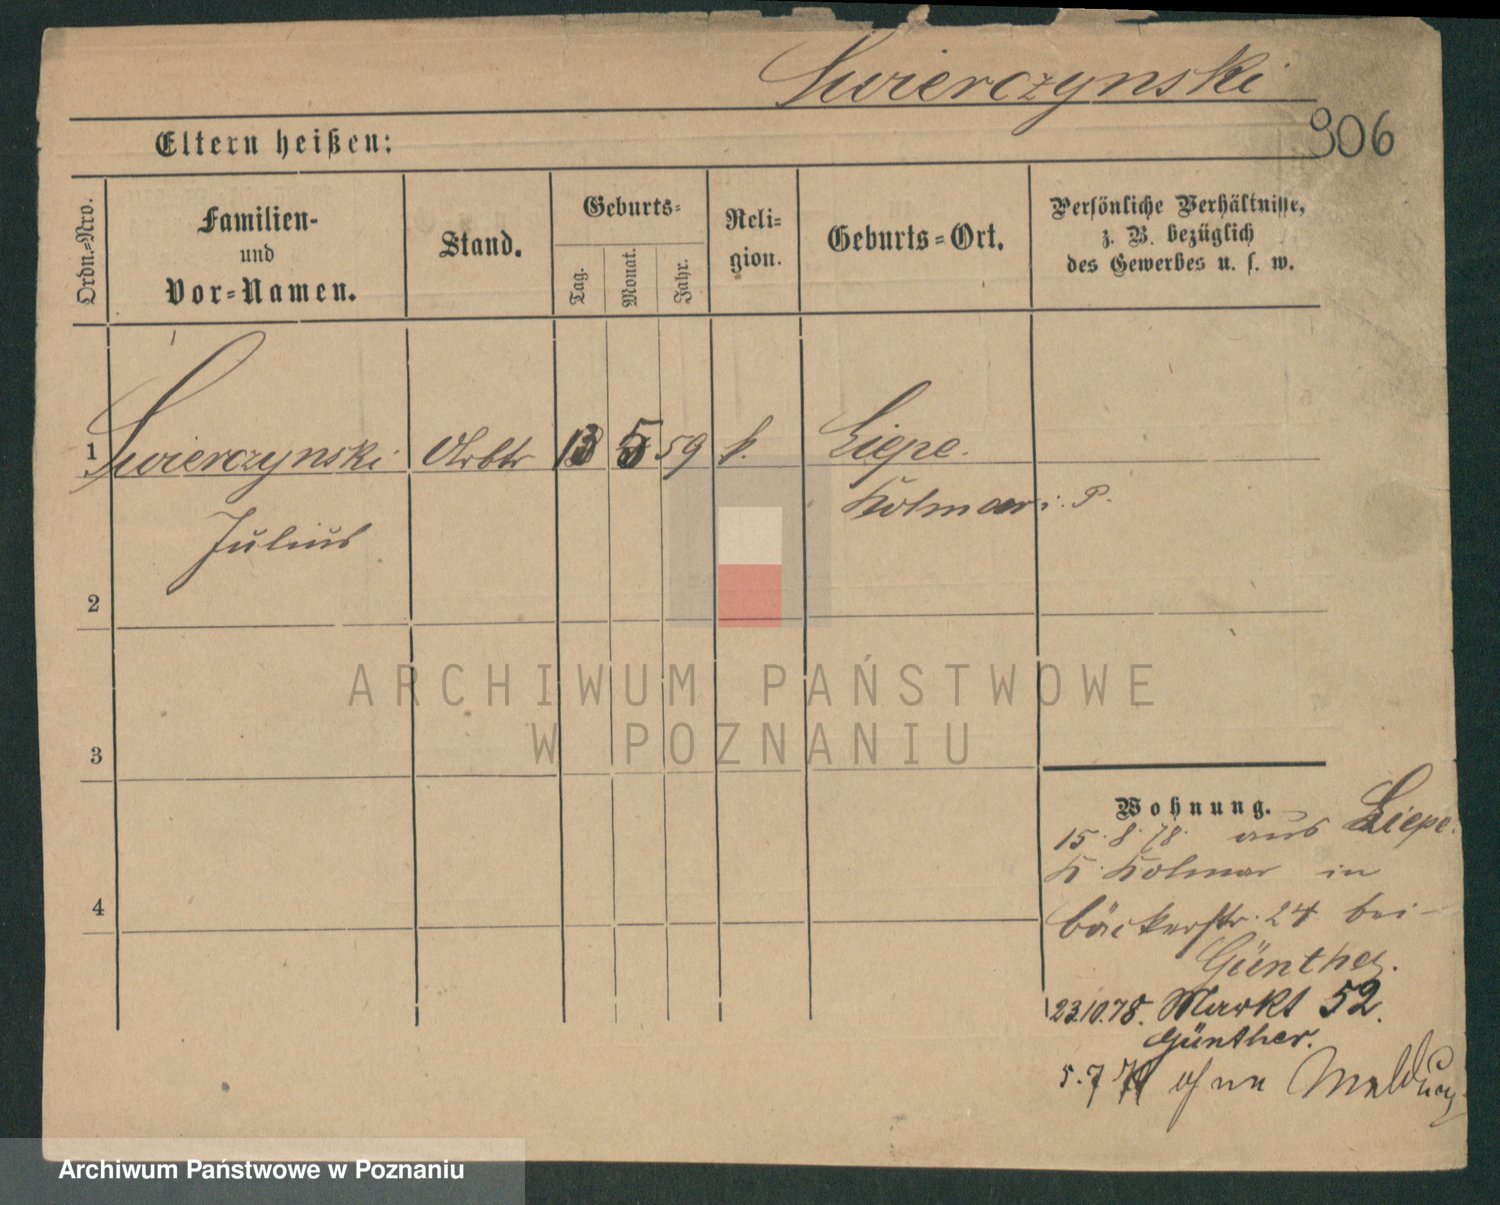 Swierczynski
306
Eltern heißen:
Ordn.=Nro.
Familien-
und
Vor=Namen.
Stand.
Geburts=
Tag.
Monat.
Jahr.
Reli=
gion.
Geburts=Ort.
Persönliche Verhältnisse,
z. B. bezüglich
des Gewerbes u. s. w.
1 Swierczynski Arbtr 13 5 59 k. Liepe.
Kolmar i. P.
Julius
2
3
4
Wohnung.
15.8.78. aus Liepe.
K. Kolmar in
Bäckerstr. 24 bei
Günther.
23.10.78. Markt 52.
Günther.
5.7 ohne Meldung
ARCHIWUM PAŃSTWOWE
W POZNANIU
Archiwum Państwowe w Poznaniu